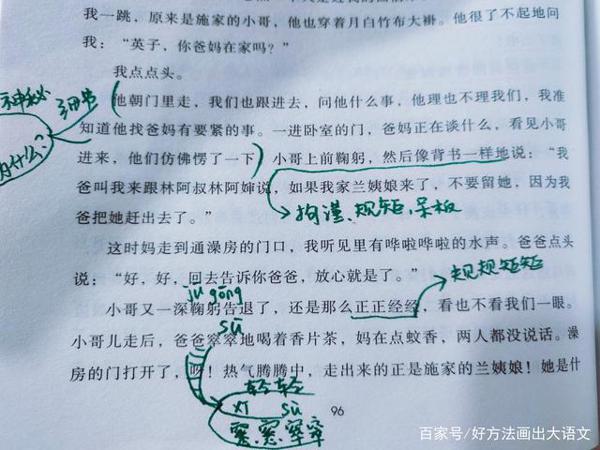 我一跳，原来是施家的小哥，他也穿着月白竹布大褂。他很了不起地问
我：“英子，你爸妈在家吗？”
我点点头。
神秘
细节
他朝门里走，我们也跟进去，问他什么事，他理也不理我们，我准
知道他找爸妈有要紧的事。一进卧室的门，爸妈正在谈什么，看见小哥
为什么？
进来，他们仿佛愣了一下）小哥上前鞠躬，然后像背书一样地说：“我
爸叫我来跟林阿叔林阿婶说，如果我家兰姨娘来了，不要留她，因为我
爸把她赶出去了。”
拘谨，规矩，呆板
这时妈走到通澡房的门口，我听见里有哗啦哗啦的水声。爸爸点头
说：“好，好，回去告诉你爸爸，放心就是了。”
规规矩矩
jū gōng
小哥又一深鞠躬告退了，还是那么正正经经，看也不看我们一眼。
sū
小哥儿走后，爸爸窣窣地喝着香片茶，妈在点蚊香，两人都没说话。澡
房的门打开了，呀！热气腾腾中，走出来的正是施家的兰姨娘！她是什
轻轻
xī sū
窸窸窣窣
96
百家号/好方法画出大语文